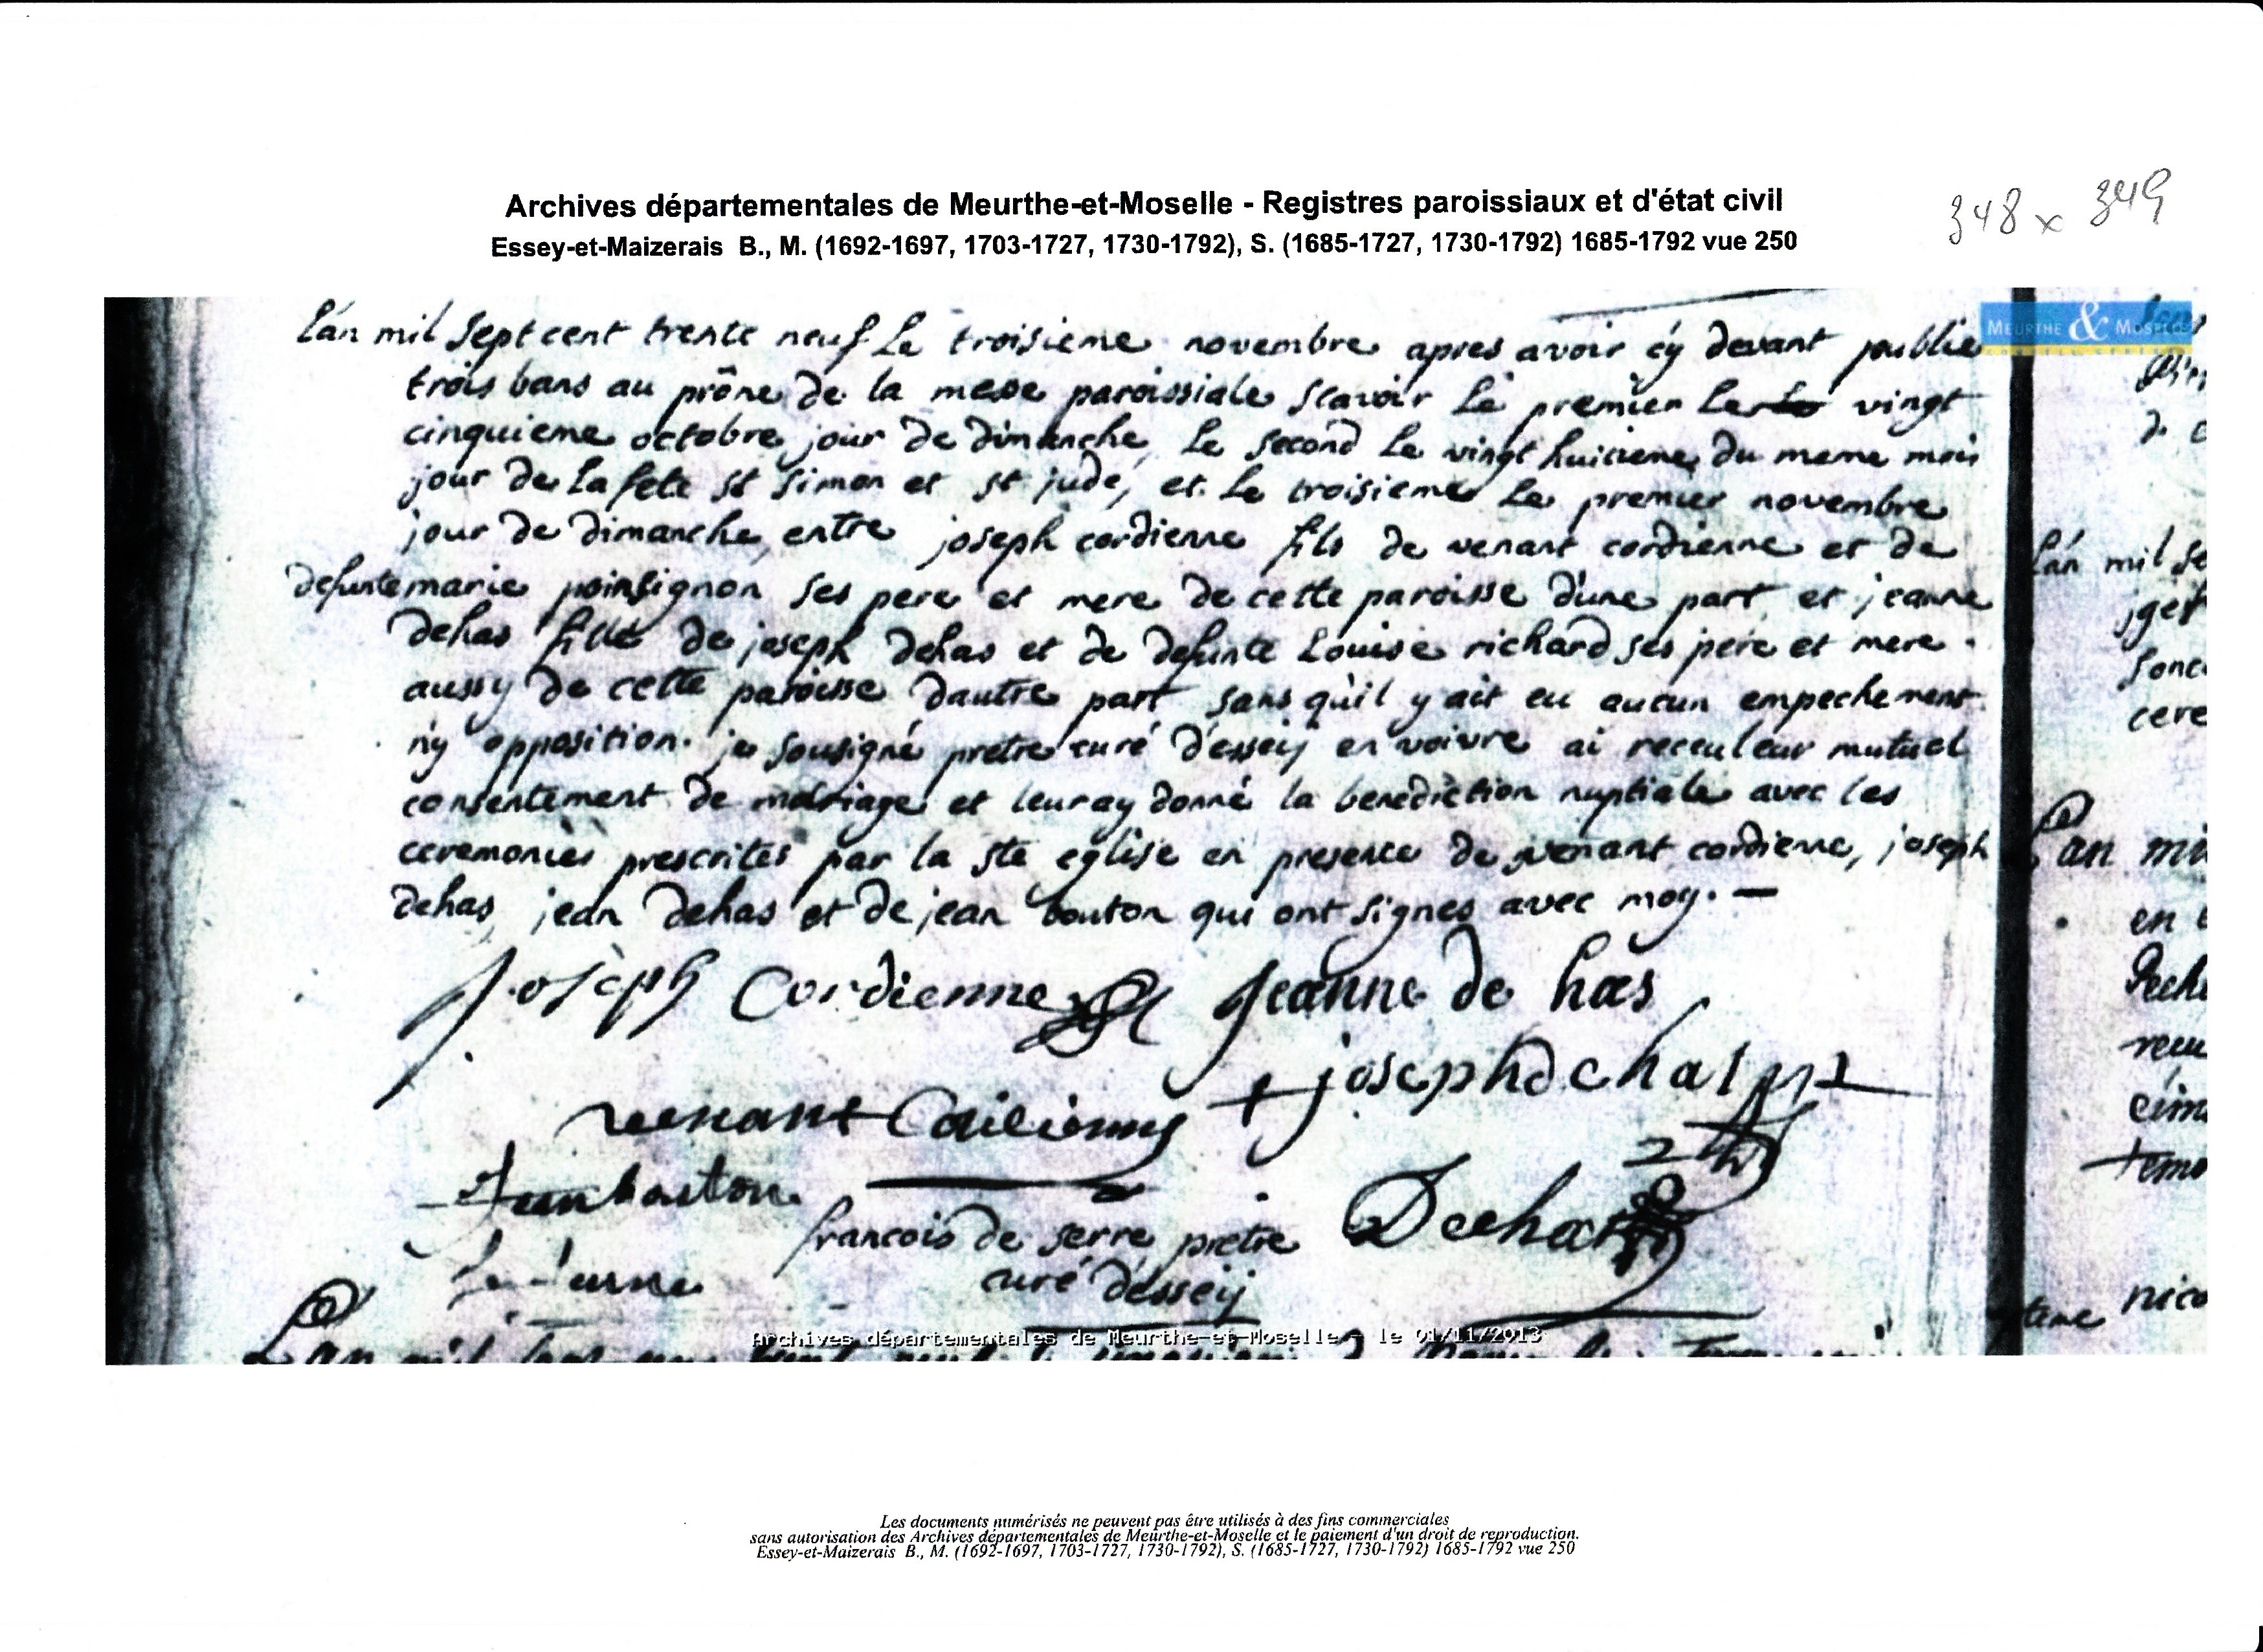 Archives départementales de Meurthe-et-Moselle - Registres paroissiaux et d'état civil
Essey-et-Maizerais B., M. (1692-1697, 1703-1727, 1730-1792), S. (1685-1727, 1730-1792) 1685-1792 vue 250
348 x 349
MEURTHE & MOSELLE
l'an mil sept cent trente neuf le troisieme novembre apres avoir cy devant publie
trois bans au prône de la messe paroissiale scavoir le premier le vingt
cinquieme octobre jour de dimanche, le second le vingt huitieme du meme mois
jour de la fete st simon et st jude, et le troisieme le premier novembre
jour de dimanche, entre joseph cordienne fils de venant cordienne et de
defunte marie poinsignon ses pere et mere de cette paroisse d'une part et jeanne
dehas fille de joseph dehas et de defunte Louise richard ses pere et mere
aussy de cette paroisse dautre part sans qu'il y ait eu aucun empechement
n'y opposition. je sousigné pretre curé d'esseij en voivre ai receu leur mutuel
consentement de mariage et leur ay donné la benediction nuptiale avec les
ceremonies prescrites par la ste eglise en presence de venant cordienne, joseph
dehas, jean dehas et de jean bouton qui ont signes avec moy. —
joseph Cordienne Jeanne de has
joseph dehas
venant
francois de serre pretre Dehas
curé d'esseij
Archives départementales de Meurthe-et-Moselle - le 01/11/2013
l'an mil se
l'an mi
Les documents numérisés ne peuvent pas être utilisés à des fins commerciales
sans autorisation des Archives départementales de Meurthe-et-Moselle et le paiement d'un droit de reproduction.
Essey-et-Maizerais B., M. (1692-1697, 1703-1727, 1730-1792), S. (1685-1727, 1730-1792) 1685-1792 vue 250